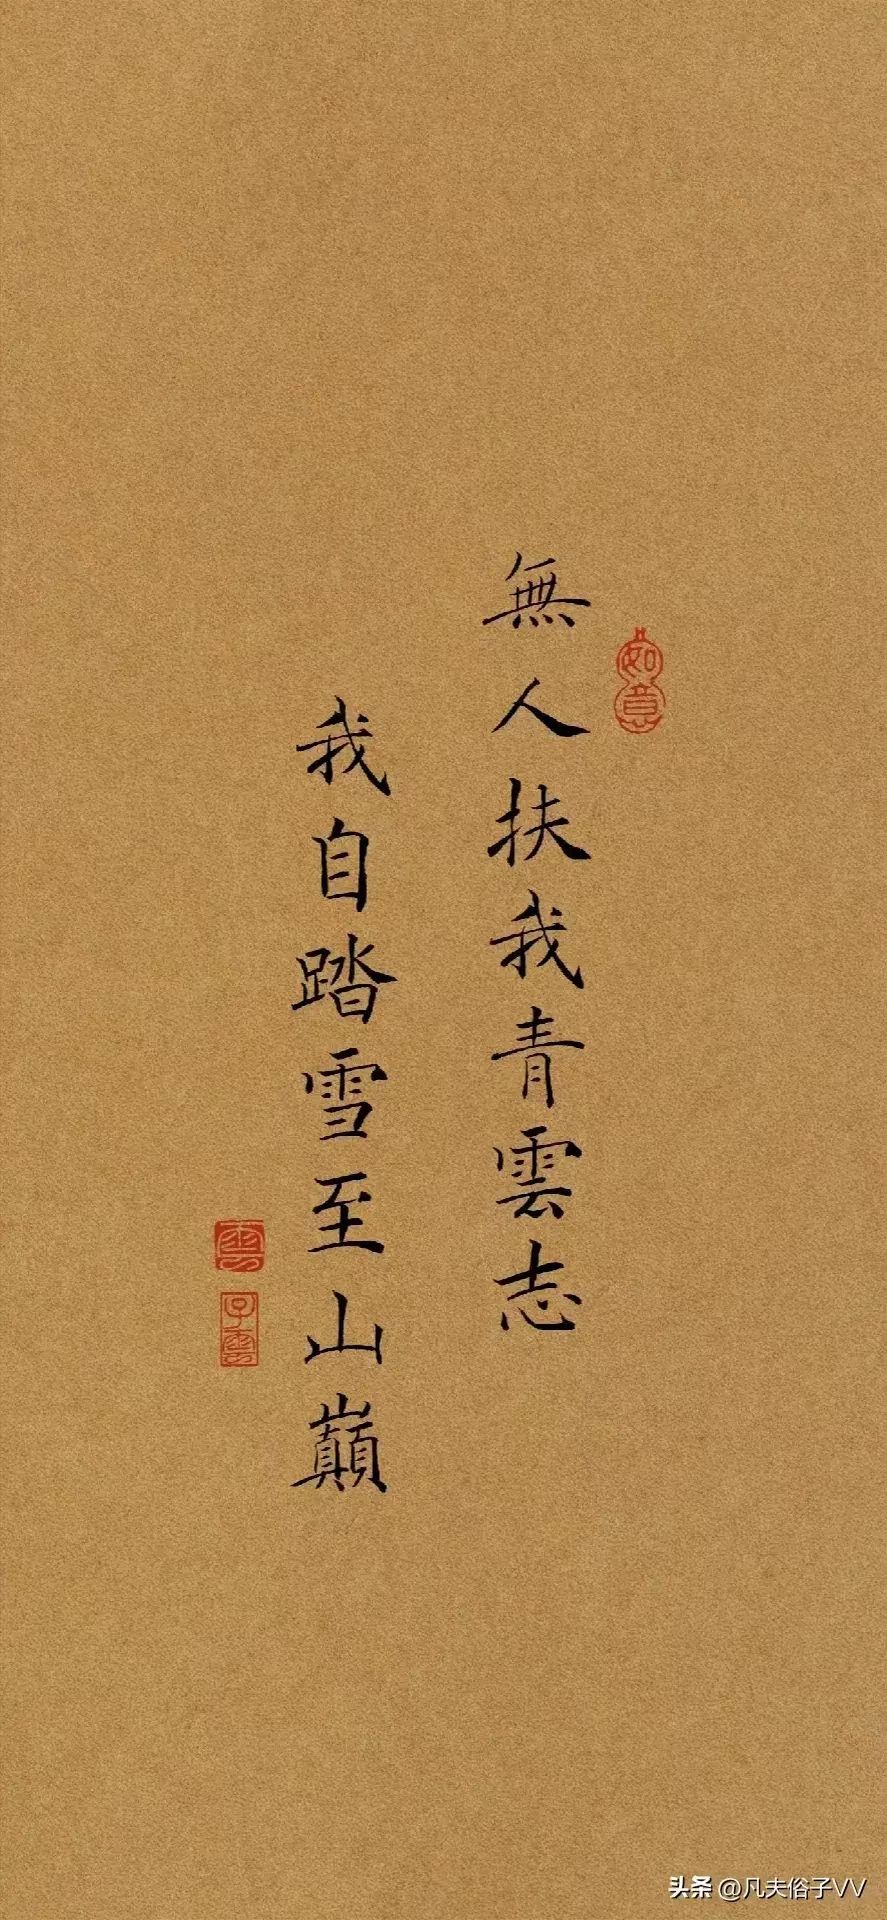 無人扶我青雲志
我自踏雪至山巔
如意
雲
子雲
头条 @凡夫俗子VV